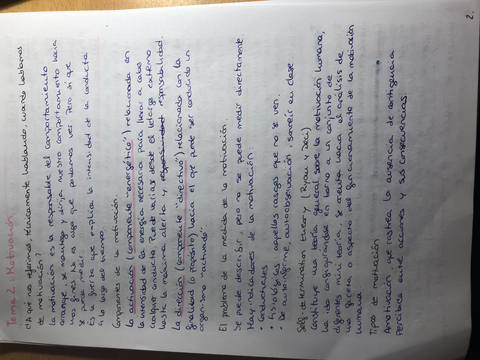 Tema 2: Motivación
¿A qué nos referimos, técnicamente hablando, cuando hablamos
de motivación?
La motivación es la responsable del comportamiento
arranque, se mantenga y dirija nuestro comportamiento hacia
unas No es algo que podamos ver pero sí que
se puede medir
Es la fuerza que explica la intensidad de la conducta
a lo largo del tiempo
Componentes de la motivación
La activación (componente "energético") relacionada con
la intensidad de la energía necesaria para llevar a cabo
cualquier conducta. Puede variar desde el letargo extremo
hasta la máxima alerta y responsabilidad.
La dirección (componente "directivo") relacionado con la
finalidad (o propósito) hacia el que puede ser conducido un
organismo "activado"
El problema de la medida de la motivación.
Se puede describir, pero no se puede medir directamente
Hay indicadores de la motivación:
• Conductuales
• Fisiológicos: aquellos rasgos que no se ven.
• De autoinforme, autoobservación: sonreír en clase
Self-determination theory (Ryan y Deci)
Constituye una teoría general sobre la motivación humana,
que ha ido configurándose en torno a un conjunto de
teoría, se orienta hacia el análisis de
una faceta o aspecto del funcionamiento de la motivación
humana
Tipos de motivación
Amotivación: que rastrea la ausencia de contingencia
percibida entre acciones y sus consecuencias.
2.